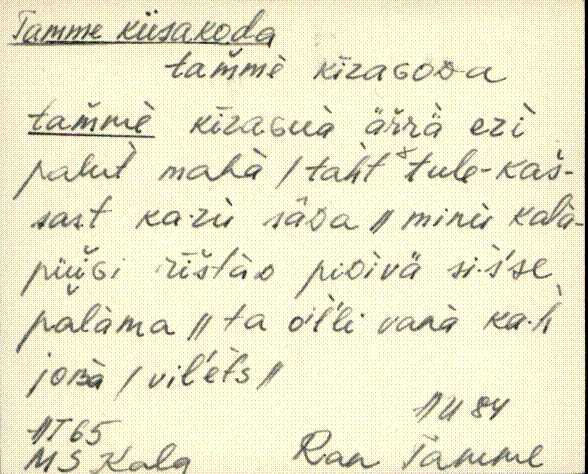 Tamme kiisakoda
tam̆mè kīzaGoDa
tam̆mè kīzaGuà är̆rä ezì
palùt mahà / taht tule-kas̆-
sast ka·rù sāDa // minù kalà-
püüGi rīs̆tàD piDìvä si·s̀se
palàma // ta oĺli vanà ka·h̀
joBà / viĺèts //
HT 65
MS Kala
HU 84
Ran Tamme